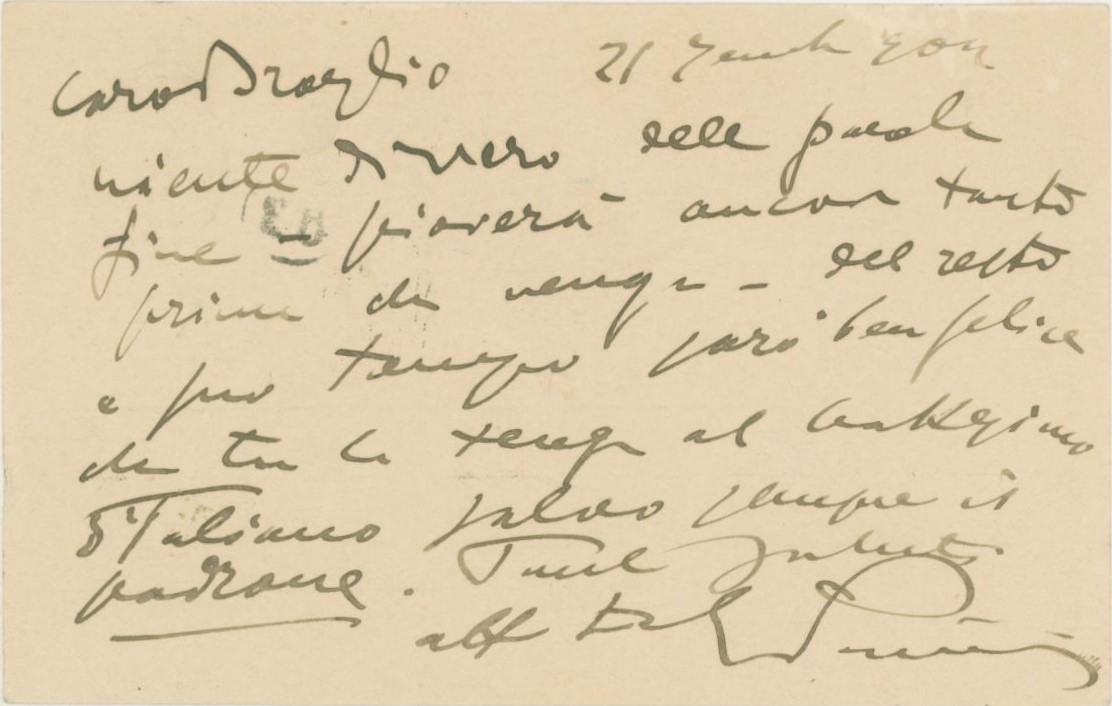 Caro Draglio 21
niente di vero delle parole
fine – pioverà ancora tanto
prima che venga – del resto
a suo tempo sarò ben felice
che tu lo tenga al battesimo
d'Italiano salvo sempre il
padrone. Tanti saluti
aff